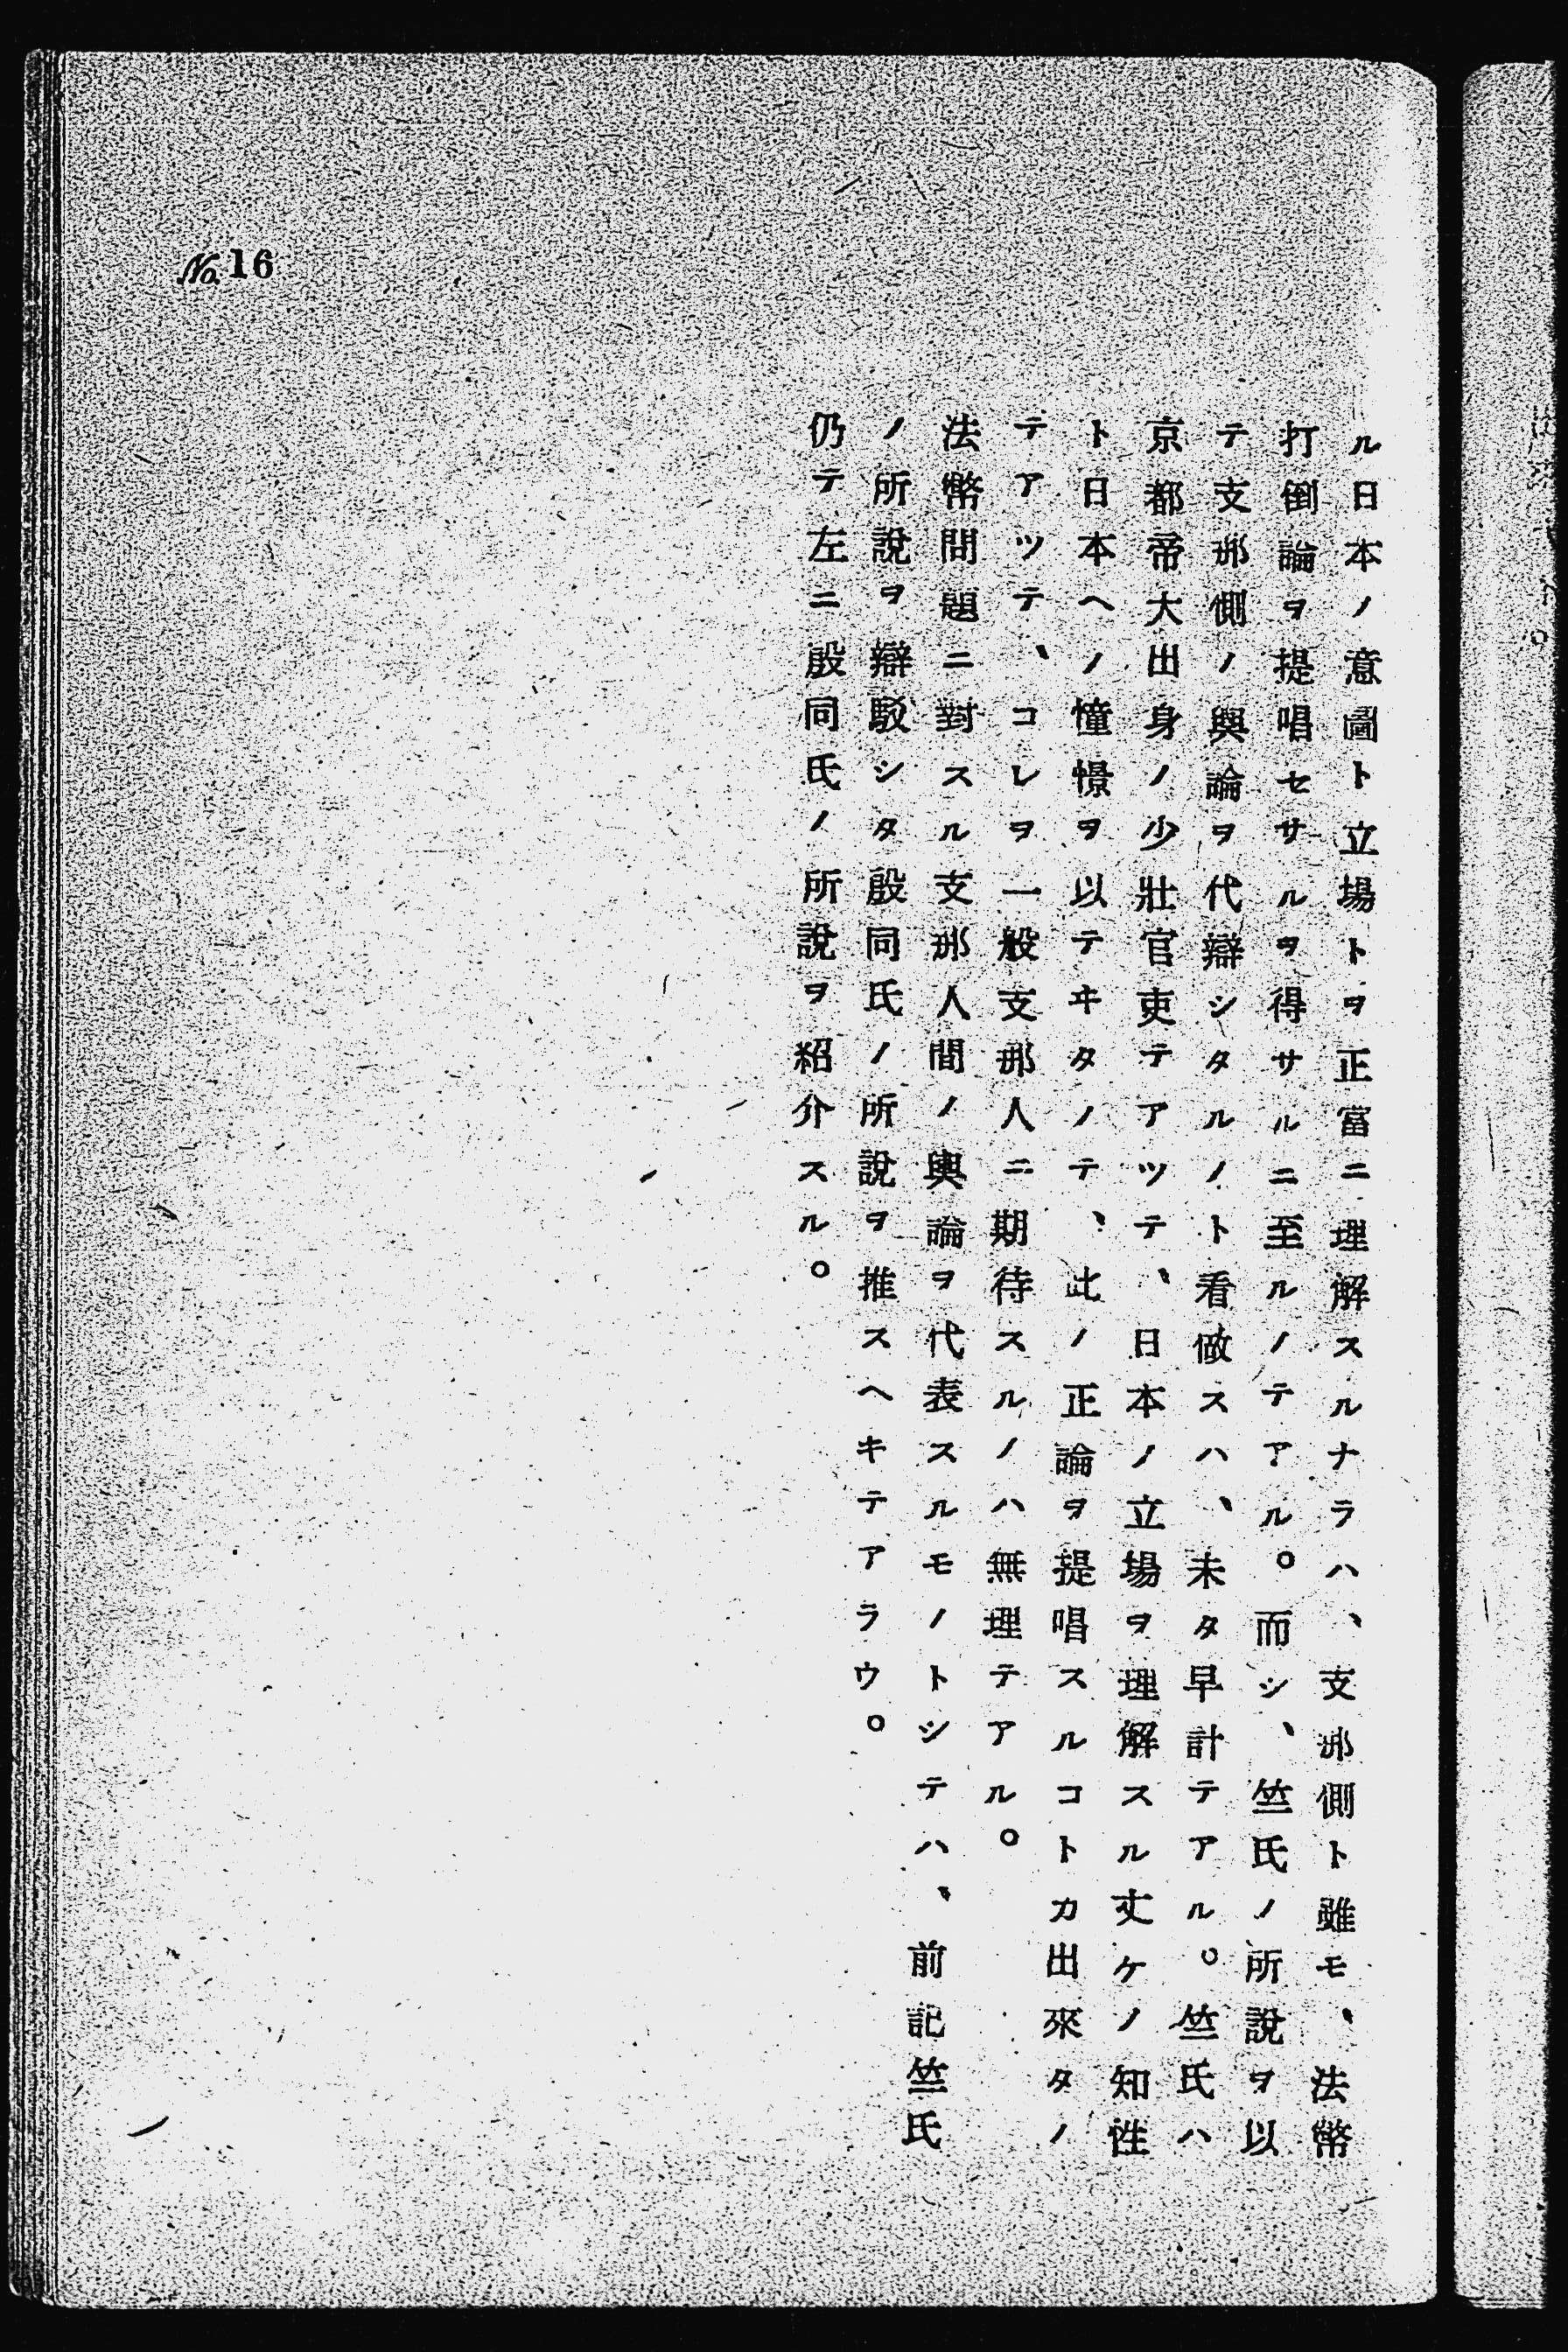 ル日本ノ意圖ト立場トヲ正當ニ理解スルナラハ、支那側ト雖モ、法幣
打倒論ヲ提唱セサルヲ得サルニ至ルノテアル。而シ、竺氏ノ所說ヲ以
テ支那側ノ輿論ヲ代辯シタルノト看做スハ、未タ早計テアル。竺氏ハ
京都帝大出身ノ少壯官吏テアツテ、日本ノ立場ヲ理解スル丈ケノ知性
ト日本ヘノ憧憬ヲ以テヰタノテ、此ノ正論ヲ提唱スルコトカ出來タノ
テアツテ、コレヲ一般支那人ニ期待スルノハ無理テアル。
法幣問題ニ對スル支那人間ノ輿論ヲ代表スルモノトシテハ、前記竺氏
ノ所說ヲ辯駁シタ殷同氏ノ所說ヲ推スヘキテアラウ。
仍テ左ニ殷同氏ノ所說ヲ紹介スル。
№16